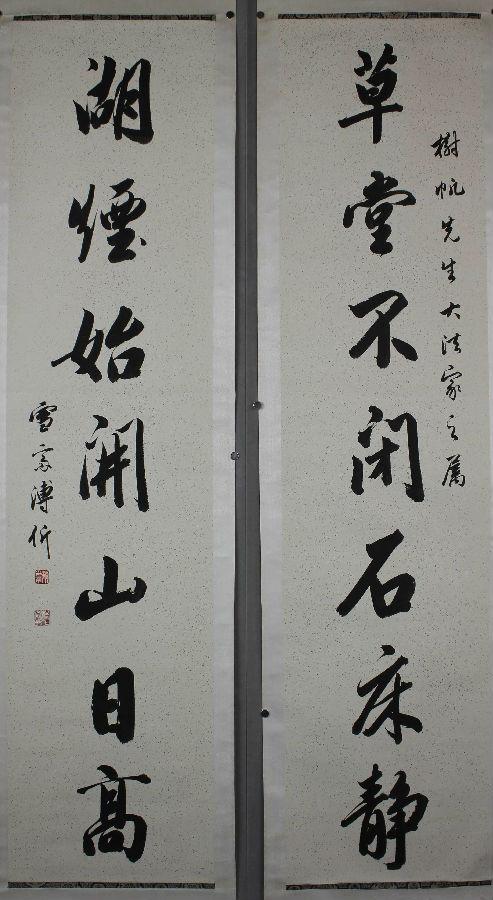 樹帆先生大法家之属
草堂不閉石床靜
湖煙始開山日高
雪齋溥伒